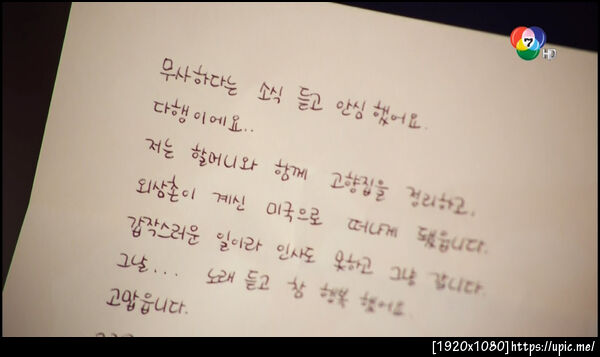 무사하다는 소식 듣고 안심했어요.
다행이에요..
저는 할머니와 함께 고향집을 정리하고,
외삼촌이 계신 미국으로 떠나게 됐읍니다.
갑작스러운 일이라 인사도 못하고 그냥 갑니다.
그날... 노래 듣고 참 행복했어요.
고맙읍니다.
7 HD
[1920x1080]https://upic.me/